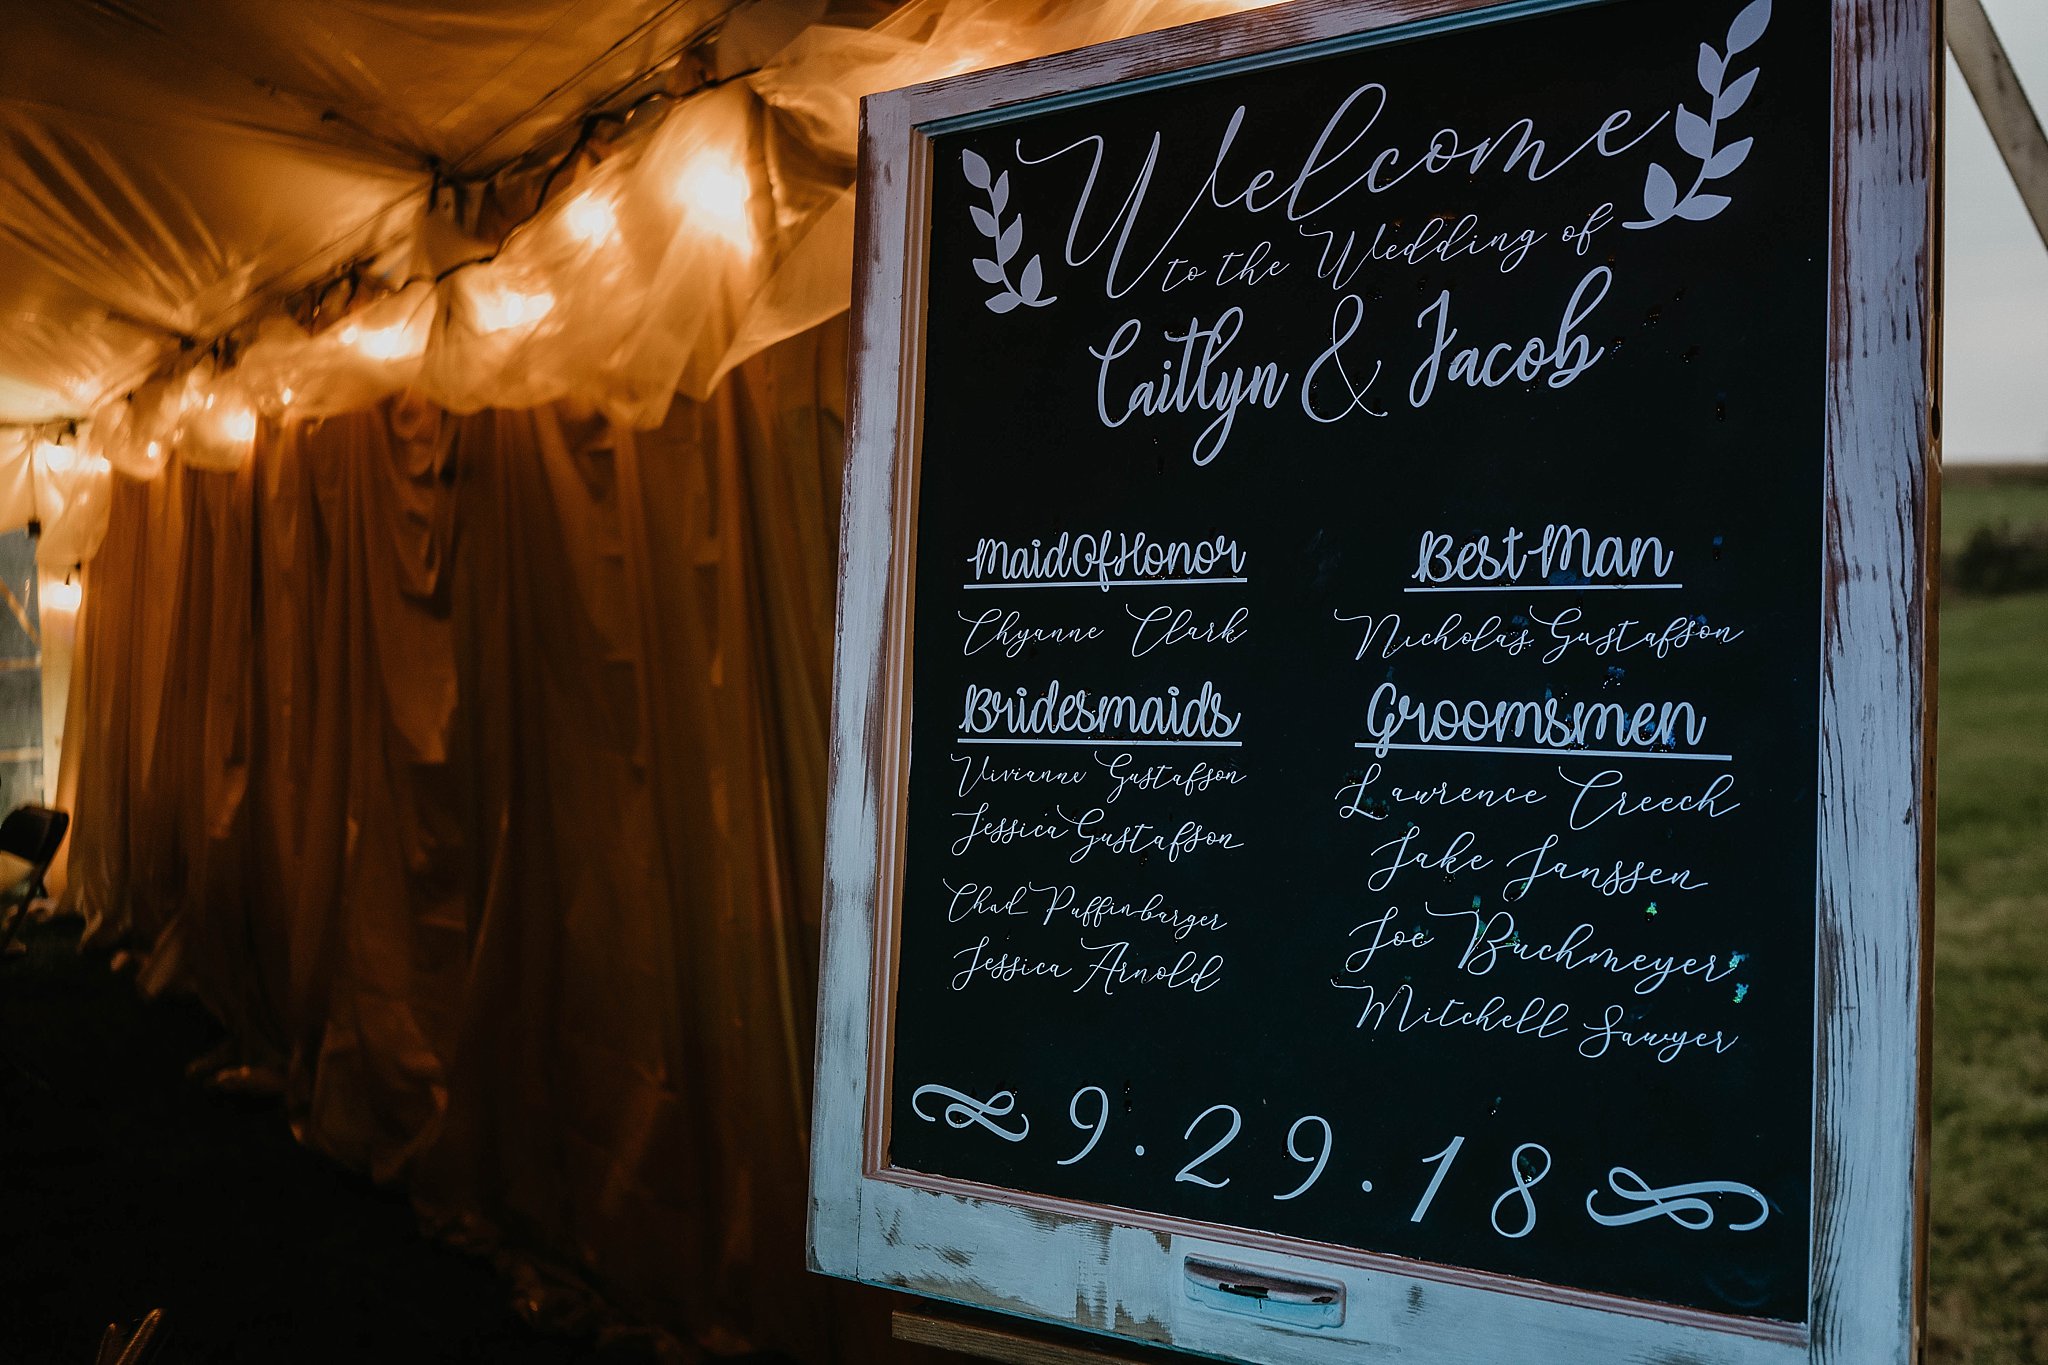 Welcome
to the Wedding of
Caitlyn & Jacob
Maid Of Honor
Chyanne Clark
Bridesmaids
Vivianne Gustafson
Jessica Gustafson
Chad Puffinbarger
Jessica Arnold
Best Man
Nicholas Gustafson
Groomsmen
Lawrence Creech
Jake Janssen
Joe Buchmeyer
Mitchell Sawyer
9.29.18